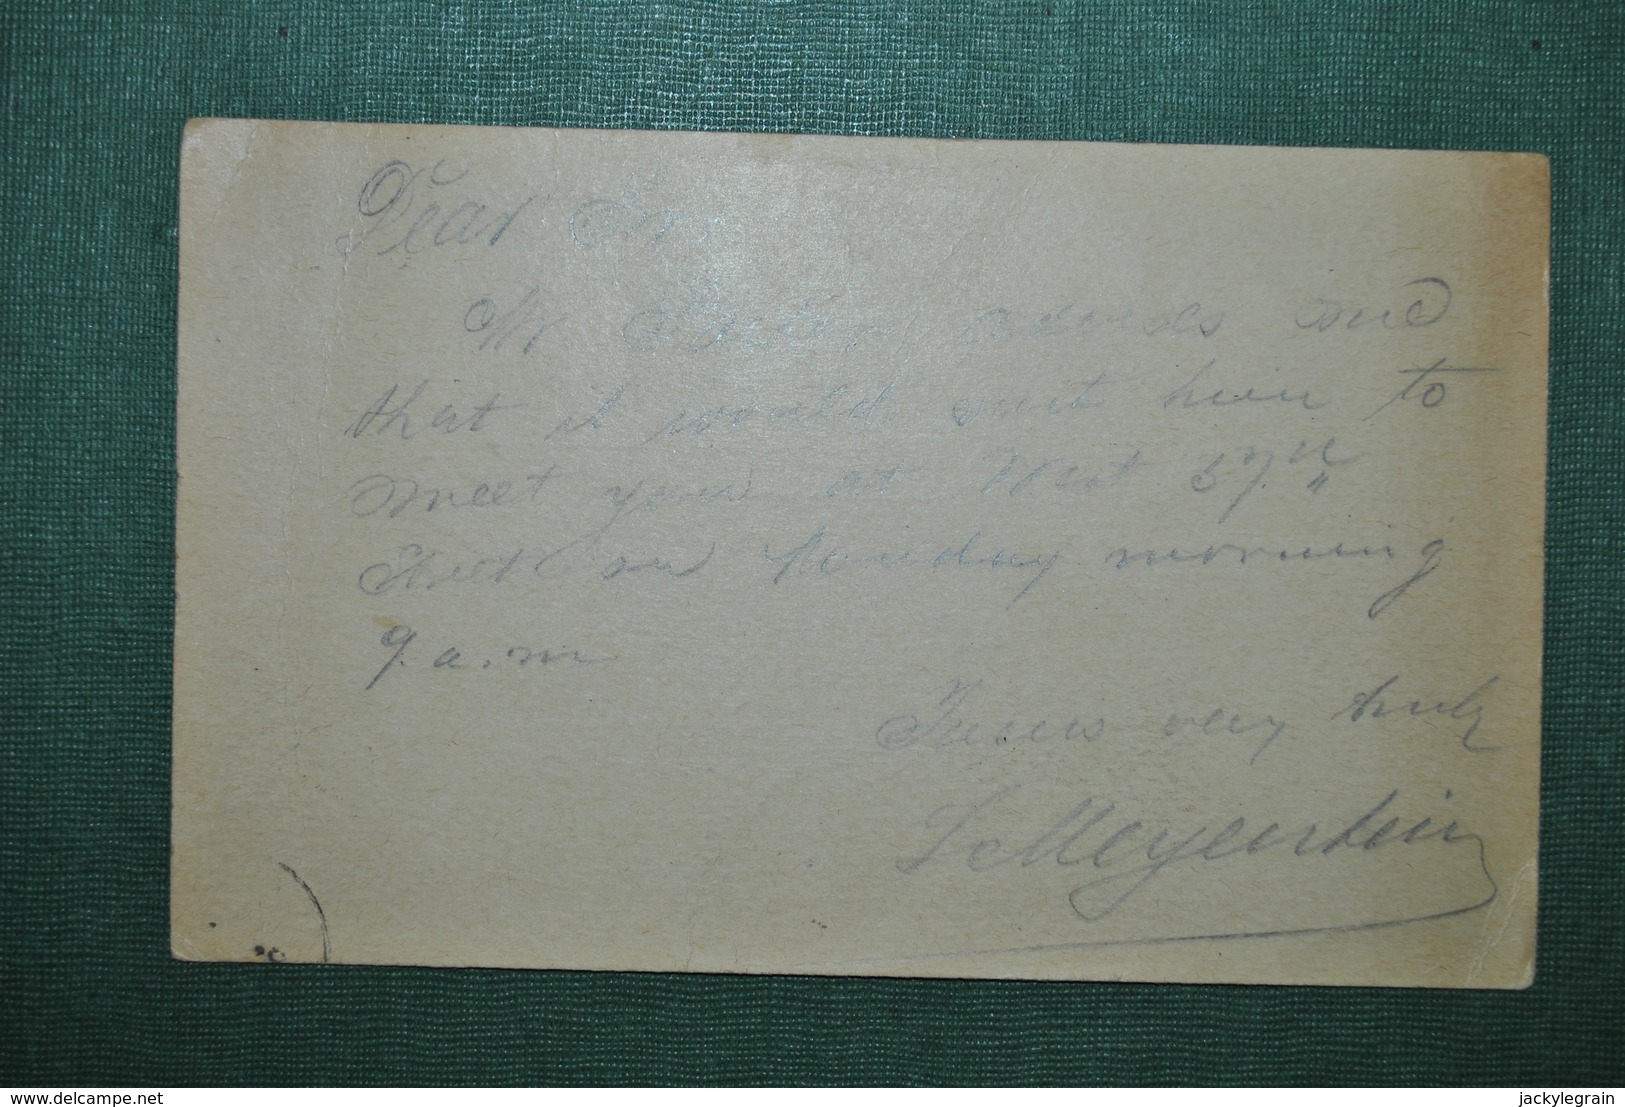 Dear Sir.
Mr advises me
that it would suit him to
meet you at West 57th
Street on Monday morning
9. a.m
Yours very truly
L Meyerstein
delcampe.net
jackylegrain